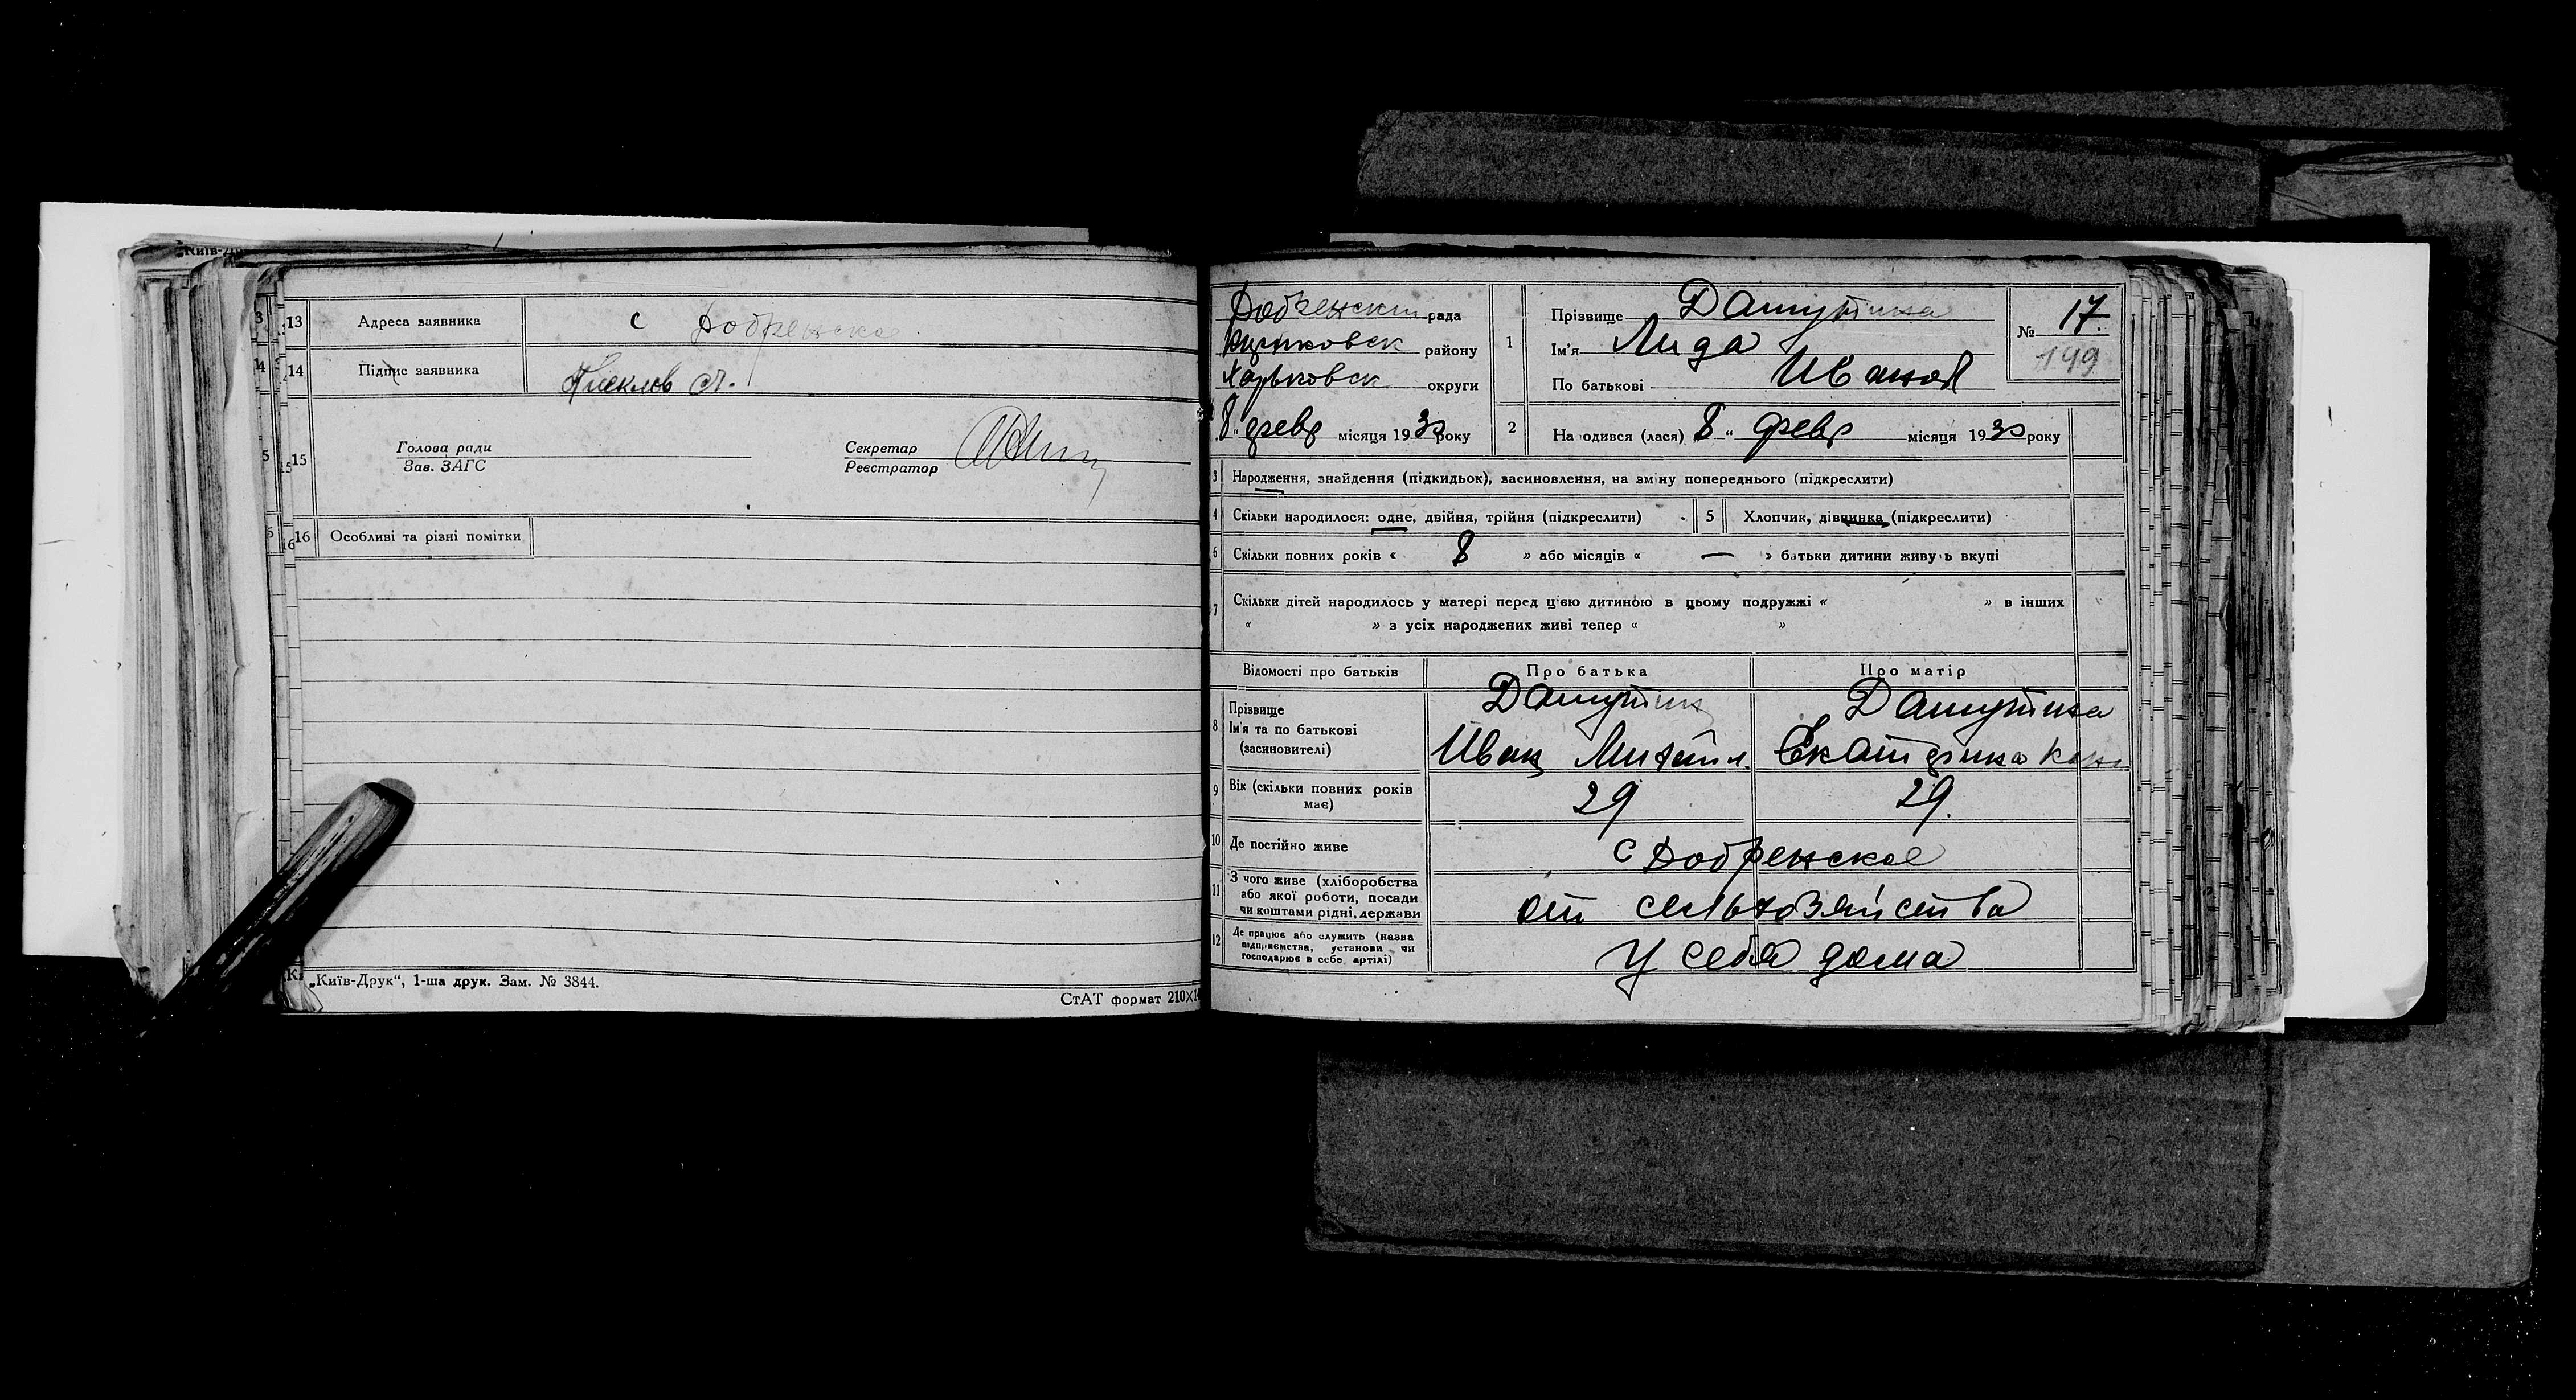 „Київ-Др
13 Адреса заявника с Добренское
14 Підпис заявника
15 Голова ради
Зав. ЗАГС
Секретар
Реєстратор
16 Особливі та різні помітки
„Київ-Друк“, 1-ша друк. Зам. № 3844.
СтАТ формат 210×1
рада
району
Харьковск округи
„8“ февр місяця 1930 року
1 Прізвище Дашутина
Ім'я Лида
По батькові Иванов
№ 17.
199
2 Народився (лася) 8 “ февр місяця 1930 року
3 Народження, знайдення (підкидьок), засиновлення, на зміну попереднього (підкреслити)
4 Скільки народилося: одне, двійня, трійня (підкреслити) 5 Хлопчик, дівчинка (підкреслити)
6 Скільки повних років « 8 » або місяців « — » батьки дитини живуть вкупі
7 Скільки дітей народилось у матері перед цією дитиною в цьому подружжі « » в інших
« » з усіх народжених живі тепер « »
Відомості про батьків Про батька Про матір
8 Прізвище Дашутин Дашутина
Ім'я та по батькові
(засиновителі) Иван Михайл. Екатерина
9 Вік (скільки повних років
має) 29 29.
10 Де постійно живе с Добренское
11 З чого живе (хліборобства
або якої роботи, посади
чи коштами рідні, держави от сельхозяйства
12 Де працює або служить (назва
підприємства, установи чи
господарює в себе, артілі) у себя дома